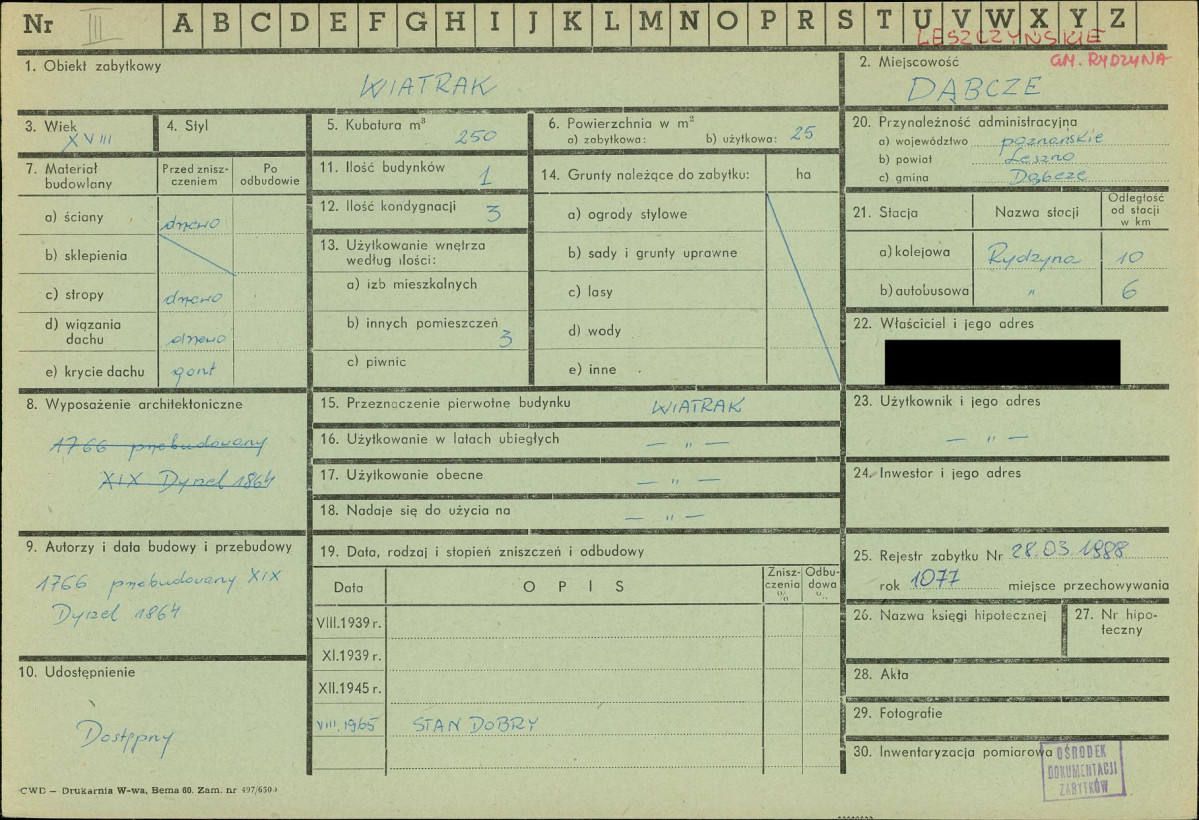 Nr III A B C D E F G H I J K L M N O P R S T U V W X Y Z
LESZCZYŃSKIE
GM. RYDZYNA
1. Obiekt zabytkowy
WIATRAK
2. Miejscowość
DĄBCZE
3. Wiek
XVIII
4. Styl
5. Kubatura m³
250
6. Powierzchnia w m²
a) zabytkowa: b) użytkowa: 25
20. Przynależność administracyjna
a) województwo poznańskie
b) powiat Leszno
c) gmina Dąbcze
7. Materiał budowlany
Przed znisz-
czeniem
Po
odbudowie
a) ściany drewo
b) sklepienia
c) stropy drewo
d) wiązania
dachu drewo
e) krycie dachu gont
11. Ilość budynków 1
12. Ilość kondygnacji 3
13. Użytkowanie wnętrza
według ilości:
a) izb mieszkalnych
b) innych pomieszczeń 3
c) piwnic
14. Grunty należące do zabytku: ha
a) ogrody stylowe
b) sady i grunty uprawne
c) lasy
d) wody
e) inne
21. Stacja Nazwa stacji
Odległość
od stacji
w km
a) kolejowa Rydzyna 10
b) autobusowa " 6
22. Właściciel i jego adres
8. Wyposażenie architektoniczne
1766 przebudowany
XIX Dyrzel 1864
15. Przeznaczenie pierwotne budynku WIATRAK
16. Użytkowanie w latach ubiegłych — " —
17. Użytkowanie obecne — " —
18. Nadaje się do użycia na — " —
23. Użytkownik i jego adres
— " —
24. Inwestor i jego adres
9. Autorzy i data budowy i przebudowy
1766 przebudowany XIX
Dyrzel 1864
19. Data, rodzaj i stopień zniszczeń i odbudowy
Data OPIS
Znisz-
czenia
%
Odbu-
dowa
%
VIII.1939 r.
XI.1939 r.
XII.1945 r.
VIII.1965 STAN DOBRY
25. Rejestr zabytku Nr 28.03 1988
rok 1077 miejsce przechowywania
26. Nazwa księgi hipotecznej
27. Nr hipo-
teczny
10. Udostępnienie
Dostępny
28. Akta
29. Fotografie
30. Inwentaryzacja pomiarowa
OŚRODEK
DOKUMENTACJI
ZABYTKÓW
CWD — Drukarnia W-wa, Bema 60. Zam. nr 497/650